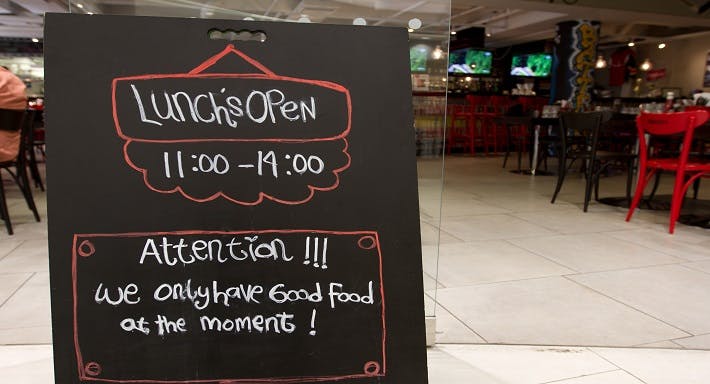 Lunch's OPen
11:00 - 14:00
Attention !!!
we only have Good food
at the moment !